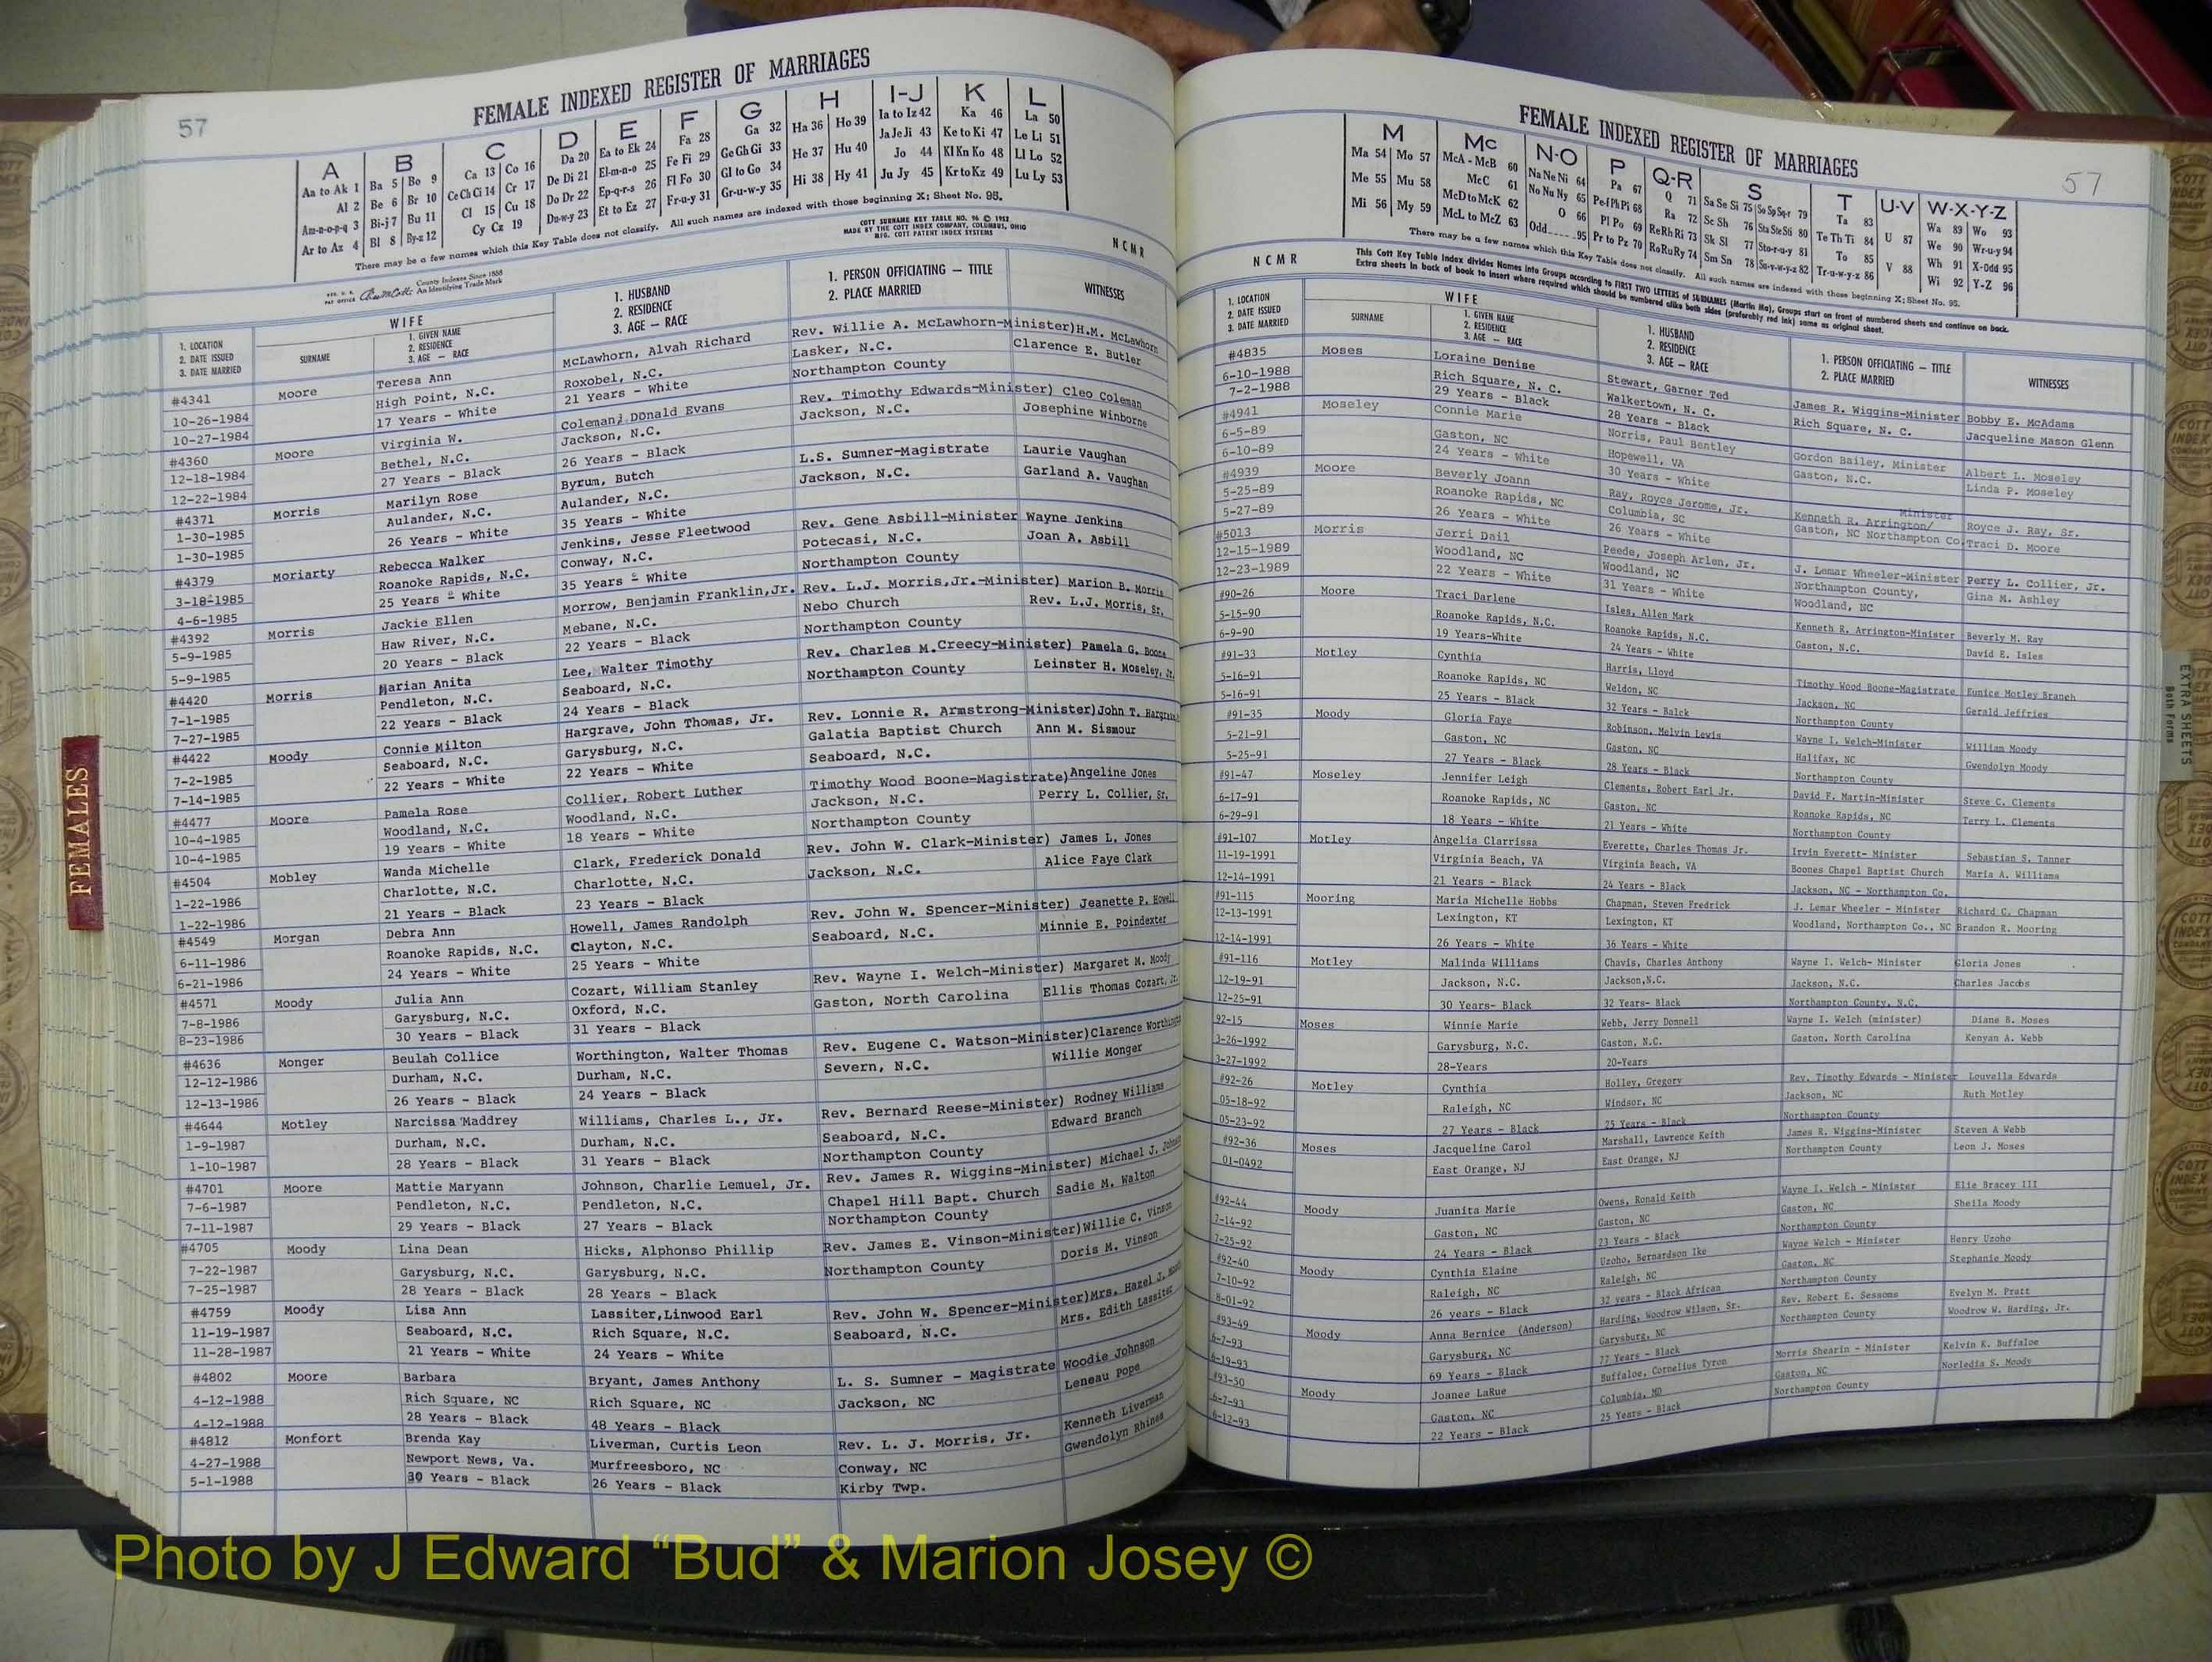 57
FEMALE INDEXED REGISTER OF MARRIAGES
A B C D E F G H I-J K L
Aa to Ak 1 Ba 5 Bo 9 Ca 13 Co 16 Da 20 Ea to Ek 24 Fa 28 Ga 32 Ha 36 Ho 39 Ia to Iz 42 Ka 46 La 50
Al 2 Be 6 Br 10 Ce Ch Ci 14 Cr 17 De Di 21 El-m-n-o 25 Fe Fi 29 Ge Gh Gi 33 He 37 Hu 40 Ja Je Ji 43 Ke to Ki 47 Le Li 51
Am-n-o-p-q 3 Bi-j 7 Bu 11 Cl 15 Cu 18 Do Dr 22 Ep-q-r-s 26 Fl Fo 30 Gl to Go 34 Hi 38 Hy 41 Jo 44 Kl Kn Ko 48 Ll Lo 52
Ar to Az 4 Bl 8 By-z 12 Cy Cz 19 Du-w-y 23 Et to Ez 27 Fr-u-y 31 Gr-u-w-y 35 Ju Jy 45 Kr to Kz 49 Lu Ly 53
There may be a few names which this Key Table does not classify. All such names are indexed with those beginning X; Sheet No. 95.
COTT SURNAME KEY TABLE NO. 96 © 1952
MADE BY THE COTT INDEX COMPANY, COLUMBUS, OHIO
MFG. COTT PATENT INDEX SYSTEMS
County Indexes Since 1888
An Identifying Trade Mark
NCMR
1. LOCATION
2. DATE ISSUED
3. DATE MARRIED
WIFE
SURNAME
1. GIVEN NAME
2. RESIDENCE
3. AGE — RACE
1. HUSBAND
2. RESIDENCE
3. AGE — RACE
1. PERSON OFFICIATING — TITLE
2. PLACE MARRIED
WITNESSES
#4341 Moore Teresa Ann McLawhorn, Alvah Richard Rev. Willie A. McLawhorn-Minister) H.M. McLawhorn
10-26-1984 High Point, N.C. Roxobel, N.C. Lasker, N.C. Clarence E. Butler
10-27-1984 17 Years - White 21 Years - White Northampton County
#4360 Moore Virginia W. Coleman, DOnald Evans Rev. Timothy Edwards-Minister) Cleo Coleman
12-18-1984 Bethel, N.C. Jackson, N.C. Jackson, N.C. Josephine Winborne
12-22-1984 27 Years - Black 26 Years - Black
#4371 Morris Marilyn Rose Byrum, Butch L.S. Sumner-Magistrate Laurie Vaughan
1-30-1985 Aulander, N.C. Aulander, N.C. Jackson, N.C. Garland A. Vaughan
1-30-1985 26 Years - White 35 Years - White
#4379 Moriarty Rebecca Walker Jenkins, Jesse Fleetwood Rev. Gene Asbill-Minister Wayne Jenkins
3-18-1985 Roanoke Rapids, N.C. Conway, N.C. Potecasi, N.C. Joan A. Asbill
4-6-1985 25 Years - White 35 Years - White Northampton County
#4392 Morris Jackie Ellen Morrow, Benjamin Franklin,Jr. Rev. L.J. Morris,Jr.-Minister) Marion B. Morris
5-9-1985 Haw River, N.C. Mebane, N.C. Nebo Church Rev. L.J. Morris, Sr.
5-9-1985 20 Years - Black 22 Years - Black Northampton County
#4420 Morris Marian Anita Lee, Walter Timothy Rev. Charles M.Creecy-Minister) Pamela G. Boone
7-1-1985 Pendleton, N.C. Seaboard, N.C. Northampton County Leinster H. Moseley, Jr.
7-27-1985 22 Years - Black 24 Years - Black
#4422 Moody Connie Milton Hargrave, John Thomas, Jr. Rev. Lonnie R. Armstrong-Minister) John T. Hargrave
7-2-1985 Seaboard, N.C. Garysburg, N.C. Galatia Baptist Church Ann M. Sismour
7-14-1985 22 Years - White 22 Years - White Seaboard, N.C.
#4477 Moore Pamela Rose Collier, Robert Luther Timothy Wood Boone-Magistrate) Angeline Jones
10-4-1985 Woodland, N.C. Woodland, N.C. Jackson, N.C. Perry L. Collier, Sr.
10-4-1985 19 Years - White 18 Years - White Northampton County
#4504 Mobley Wanda Michelle Clark, Frederick Donald Rev. John W. Clark-Minister) James L. Jones
1-22-1986 Charlotte, N.C. Charlotte, N.C. Jackson, N.C. Alice Faye Clark
1-22-1986 21 Years - Black 23 Years - Black
#4549 Morgan Debra Ann Howell, James Randolph Rev. John W. Spencer-Minister) Jeanette P. Howell
6-11-1986 Roanoke Rapids, N.C. Clayton, N.C. Seaboard, N.C. Minnie E. Poindexter
6-21-1986 24 Years - White 25 Years - White
#4571 Moody Julia Ann Cozart, William Stanley Rev. Wayne I. Welch-Minister) Margaret M. Moody
7-8-1986 Garysburg, N.C. Oxford, N.C. Gaston, North Carolina Ellis Thomas Cozart, Jr.
8-23-1986 30 Years - Black 31 Years - Black
#4636 Monger Beulah Collice Worthington, Walter Thomas Rev. Eugene C. Watson-Minister) Clarence Worthington
12-12-1986 Durham, N.C. Durham, N.C. Severn, N.C. Willie Monger
12-13-1986 26 Years - Black 24 Years - Black
#4644 Motley Narcissa Maddrey Williams, Charles L., Jr. Rev. Bernard Reese-Minister) Rodney Williams
1-9-1987 Durham, N.C. Durham, N.C. Seaboard, N.C. Edward Branch
1-10-1987 28 Years - Black 31 Years - Black Northampton County
#4701 Moore Mattie Maryann Johnson, Charlie Lemuel, Jr. Rev. James R. Wiggins-Minister) Michael J. Johnson
7-6-1987 Pendleton, N.C. Pendleton, N.C. Chapel Hill Bapt. Church Sadie M. Walton
7-11-1987 29 Years - Black 27 Years - Black Northampton County
#4705 Moody Lina Dean Hicks, Alphonso Phillip Rev. James E. Vinson-Minister) Willie C. Vinson
7-22-1987 Garysburg, N.C. Garysburg, N.C. Northampton County Doris M. Vinson
7-25-1987 28 Years - Black 28 Years - Black
#4759 Moody Lisa Ann Lassiter,Linwood Earl Rev. John W. Spencer-Minister) Mrs. Hazel J.
11-19-1987 Seaboard, N.C. Rich Square, N.C. Seaboard, N.C. Mrs. Edith Lassiter
11-28-1987 21 Years - White 24 Years - White
#4802 Moore Barbara Bryant, James Anthony L. S. Sumner - Magistrate Woodie Johnson
4-12-1988 Rich Square, NC Rich Square, NC Jackson, NC Leneau Pope
4-12-1988 28 Years - Black 48 Years - Black
#4812 Monfort Brenda Kay Liverman, Curtis Leon Rev. L. J. Morris, Jr. Kenneth Liverman
4-27-1988 Newport News, Va. Murfreesboro, NC Conway, NC Gwendolyn Rhines
5-1-1988 30 Years - Black 26 Years - Black Kirby Twp.
FEMALES
FEMALE INDEXED REGISTER OF MARRIAGES
57
M Mc N-O P Q-R S T U-V W-X-Y-Z
Ma 54 Mo 57 McA - McB 60 Na Ne Ni 64 Pa 67 Q 71 Sa Se Si 75 So Sp Sq-r 79 Ta 83 Wa 89 Wo 93
Me 55 Mu 58 McC 61 No Nu Ny 65 Pe-f Ph Pi 68 Ra 72 Sc Sh 76 Sta Ste Sti 80 Te Th Ti 84 U 87 We 90 Wr-u-y 94
Mi 56 My 59 McD to McK 62 O 66 Pl Po 69 Re Rh Ri 73 Sk Sl 77 Sto-r-u-y 81 To 85 Wh 91 X-Odd 95
McL to McZ 63 Odd 95 Pr to Pz 70 Ro Ru Ry 74 Sm Sn 78 Su-v-w-y-z 82 Tr-u-w-y-z 86 V 88 Wi 92 Y-Z 96
There may be a few names which this Key Table does not classify. All such names are indexed with those beginning X; Sheet No. 95.
NCMR
This Cott Key Table Index divides Names into Groups according to FIRST TWO LETTERS of SURNAMES (Martin Ma), Groups start on front of numbered sheets and continue on back.
Extra sheets in back of book to insert where required which should be numbered alike both sides (preferably red ink) same as original sheet.
1. LOCATION
2. DATE ISSUED
3. DATE MARRIED
WIFE
SURNAME
1. GIVEN NAME
2. RESIDENCE
3. AGE — RACE
1. HUSBAND
2. RESIDENCE
3. AGE — RACE
1. PERSON OFFICIATING — TITLE
2. PLACE MARRIED
WITNESSES
#4835 Moses Loraine Denise Stewart, Garner Ted James R. Wiggins-Minister Bobby E. McAdams
6-10-1988 Rich Square, N. C. Walkertown, N. C. Rich Square, N. C. Jacqueline Mason Glenn
7-2-1988 29 Years - Black 28 Years - Black
#4941 Moseley Connie Marie Norris, Paul Bentley Gordon Bailey, Minister Albert L. Moseley
6-5-89 Gaston, NC Hopewell, VA Gaston, N.C. Linda P. Moseley
6-10-89 24 Years - White 30 Years - White
#4939 Moore Beverly Joann Ray, Royce Jerome, Jr. Kenneth R. Arrington/ Minister Royce J. Ray, Sr.
5-25-89 Roanoke Rapids, NC Columbia, SC Gaston, NC Northampton Co. Traci D. Moore
5-27-89 26 Years - White 26 Years - White
#5013 Morris Jerri Dail Peede, Joseph Arlen, Jr. J. Lemar Wheeler-Minister Perry L. Collier, Jr.
12-15-1989 Woodland, NC Woodland, NC Northampton County, Gina M. Ashley
12-23-1989 22 Years - White 31 Years - White Woodland, NC
#90-26 Moore Traci Darlene Isles, Allen Mark Kenneth R. Arrington-Minister Beverly M. Ray
5-15-90 Roanoke Rapids, N.C. Roanoke Rapids, N.C. Gaston, N.C. David E. Isles
6-9-90 19 Years-White 24 Years - White
#91-33 Motley Cynthia Harris, Lloyd Timothy Wood Boone-Magistrate Eunice Motley Branch
5-16-91 Roanoke Rapids, NC Weldon, NC Jackson, NC Gerald Jeffries
5-16-91 25 Years - Black 32 Years - Balck Northampton County
#91-35 Moody Gloria Faye Robinson, Melvin Lewis Wayne I. Welch-Minister William Moody
5-21-91 Gaston, NC Gaston, NC Halifax, NC Gwendolyn Moody
5-25-91 27 Years - Black 28 Years - Black Northampton County
#91-47 Moseley Jennifer Leigh Clements, Robert Earl Jr. David F. Martin-Minister Steve C. Clements
6-17-91 Roanoke Rapids, NC Gaston, NC Roanoke Rapids, NC Terry L. Clements
6-29-91 18 Years - White 21 Years - White Northampton County
#91-107 Motley Angelia Clarrissa Everette, Charles Thomas Jr. Irvin Everett- Minister Sebastian S. Tanner
11-19-1991 Virginia Beach, VA Virginia Beach, VA Boones Chapel Baptist Church Maria A. Williams
12-14-1991 21 Years - Black 24 Years - Black Jackson, NC - Northampton Co.
#91-115 Mooring Maria Michelle Hobbs Chapman, Steven Fredrick J. Lemar Wheeler - Minister Richard C. Chapman
12-13-1991 Lexington, KT Lexington, KT Woodland, Northampton Co., NC Brandon R. Mooring
12-14-1991 26 Years - White 36 Years - White
#91-116 Motley Malinda Williams Chavis, Charles Anthony Wayne I. Welch- Minister Gloria Jones
12-19-91 Jackson, N.C. Jackson,N.C. Jackson, N.C. Charles Jacobs
12-25-91 30 Years- Black 32 Years- Black Northampton County, N.C.
92-15 Moses Winnie Marie Webb, Jerry Donnell Wayne I. Welch (minister) Diane B. Moses
3-26-1992 Garysburg, N.C. Gaston, N.C. Gaston, North Carolina Kenyan A. Webb
3-27-1992 28-Years 20-Years
#92-26 Motley Cynthia Holley, Gregory Rev. Timothy Edwards - Minister Louvella Edwards
05-18-92 Raleigh, NC Windsor, NC Jackson, NC Ruth Motley
05-23-92 27 Years - Black 25 Years - Black Northampton County
#92-36 Moses Jacqueline Carol Marshall, Lawrence Keith James R. Wiggins-Minister Steven A Webb
01-0492 East Orange, NJ East Orange, NJ Northampton County Leon J. Moses
#92-44 Moody Juanita Marie Owens, Ronald Keith Wayne I. Welch - Minister Elie Bracey III
7-14-92 Gaston, NC Gaston, NC Gaston, NC Sheila Moody
7-25-92 24 Years - Black 23 Years - Black Northampton County
#92-40 Moody Cynthia Elaine Uzoho, Bernardson Ike Wayne Welch - Minister Henry Uzoho
7-10-92 Raleigh, NC Raleigh, NC Gaston, NC Stephanie Moody
8-01-92 26 years - Black 32 years - Black African Northampton County
#93-49 Moody Anna Bernice (Anderson) Harding, Woodrow Wilson, Sr. Rev. Robert E. Sessoms Evelyn M. Pratt
6-7-93 Garysburg, NC Garysburg, NC Northampton County Woodrow W. Harding, Jr.
6-19-93 69 Years - Black 77 Years - Black
#93-50 Moody Joanee LaRue Buffaloe, Cornelius Tyron Morris Shearin - Minister Kelvin K. Buffaloe
6-7-93 Gaston, NC Columbia, MD Gaston, NC Norledia S. Moody
6-12-93 22 Years - Black 25 Years - Black Northampton County
EXTRA SHEETS
Both Forms
Photo by J Edward “Bud” & Marion Josey ©